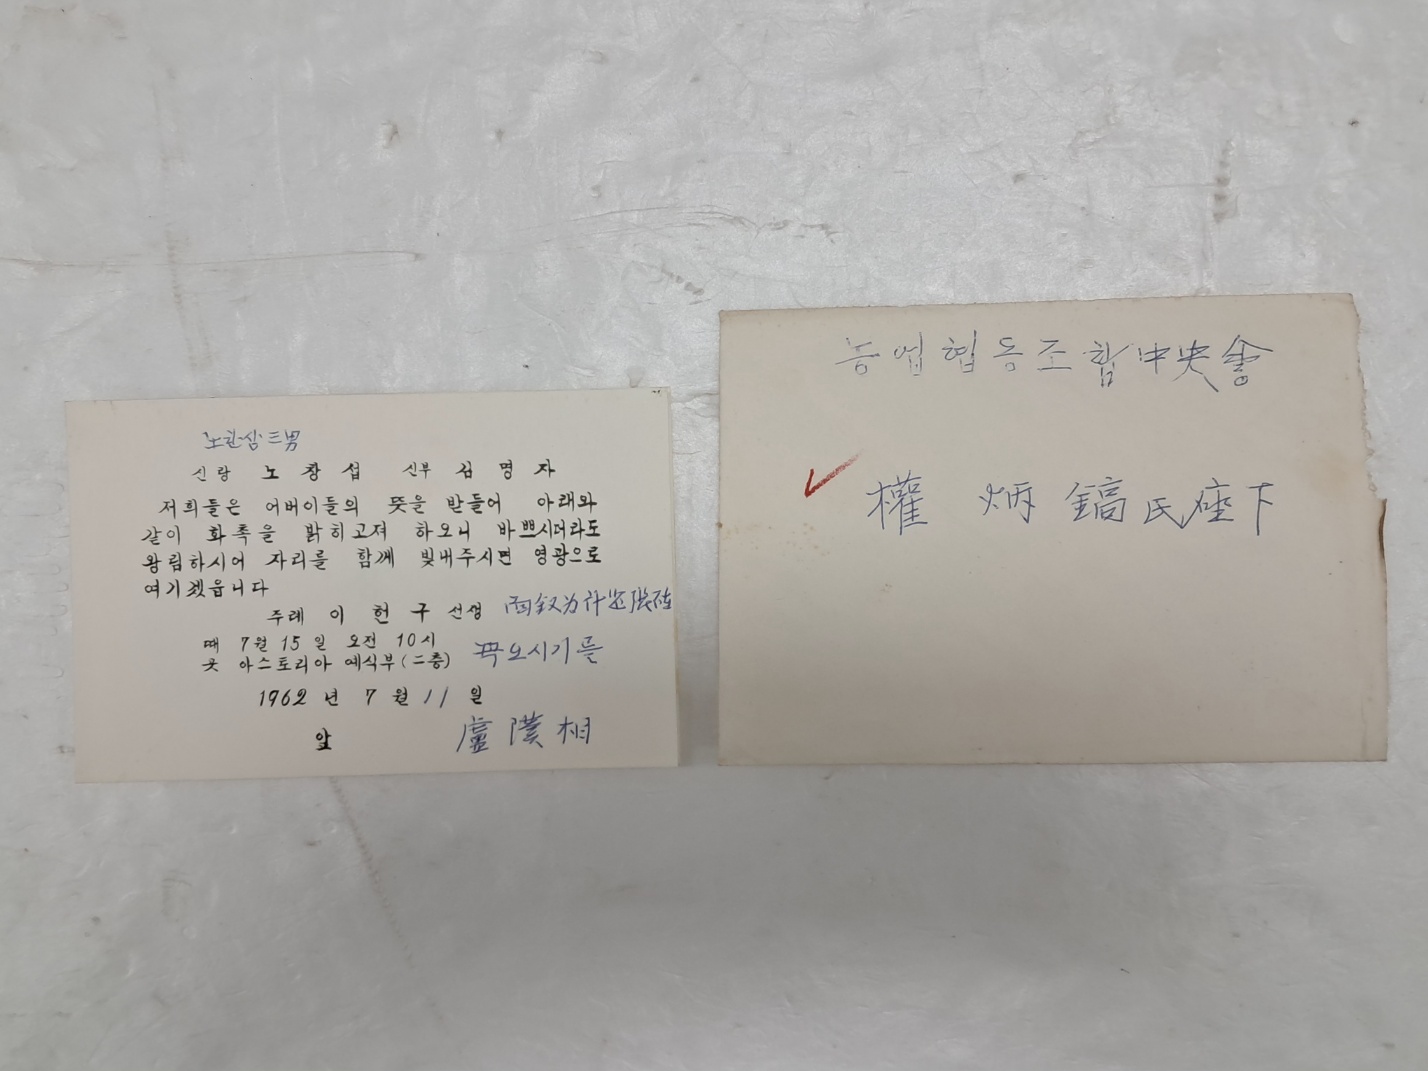 三男
신랑 노 창 섭 신부 심 명 자
저희들은 어버이들의 뜻을 받들어 아래와
같이 화촉을 밝히고져 하오니 바쁘시더라도
왕림하시어 자리를 함께 빛내주시면 영광으로
여기겠읍니다
주례 이 헌 구 선생
때 7월 15일 오전 10시
곳 아스토리아 예식부(二층)
오시기를
1962 년 7 월 11 일
앞
盧 相
농업협동조합中央會
權 炳 鎬 氏 座下